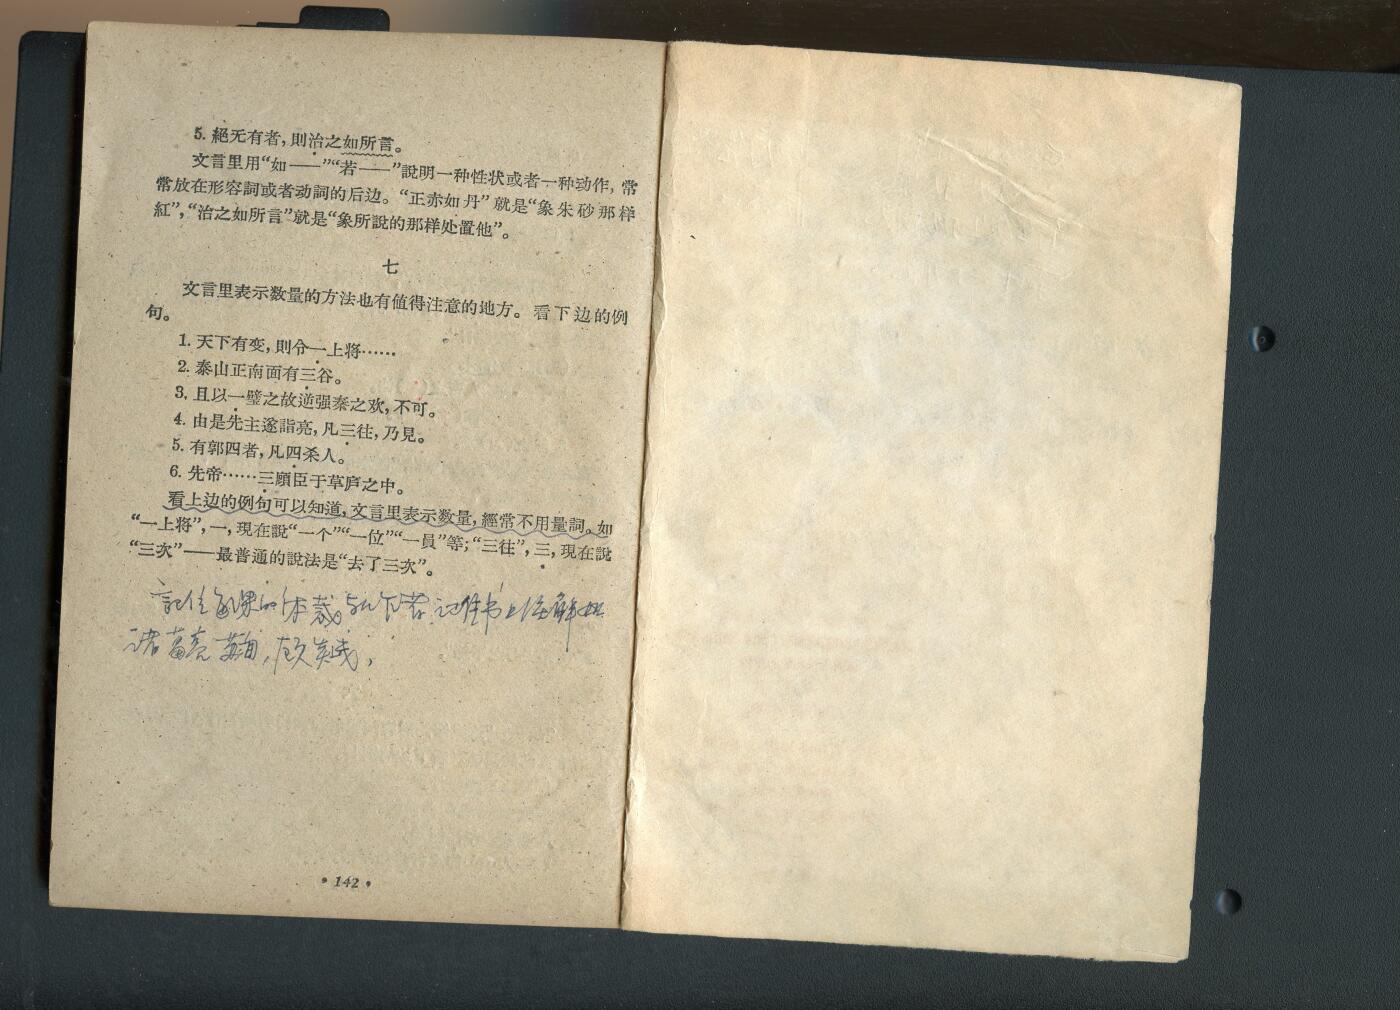 5. 絕无有者，則治之如所言。
文言里用“如——”“若——”說明一种性状或者一种动作，常
常放在形容詞或者动詞的后边。“正赤如丹”就是“象朱砂那样
紅”，“治之如所言”就是“象所說的那样处置他”。
七
文言里表示数量的方法也有値得注意的地方。看下边的例
句。
1. 天下有变，則令一上将……
2. 泰山正南面有三谷。
3. 且以一璧之故逆强秦之欢，不可。
4. 由是先主遂詣亮，凡三往，乃見。
5. 有郭四者，凡四杀人。
6. 先帝……三顧臣于草庐之中。
看上边的例句可以知道，文言里表示数量，經常不用量詞。如
“一上将”，一，現在說“一个”“一位”“一員”等；“三往”，三，現在說
“三次”——最普通的說法是“去了三次”。
記住每課的体裁 作者 記住书上注解
諸葛亮
• 142 •